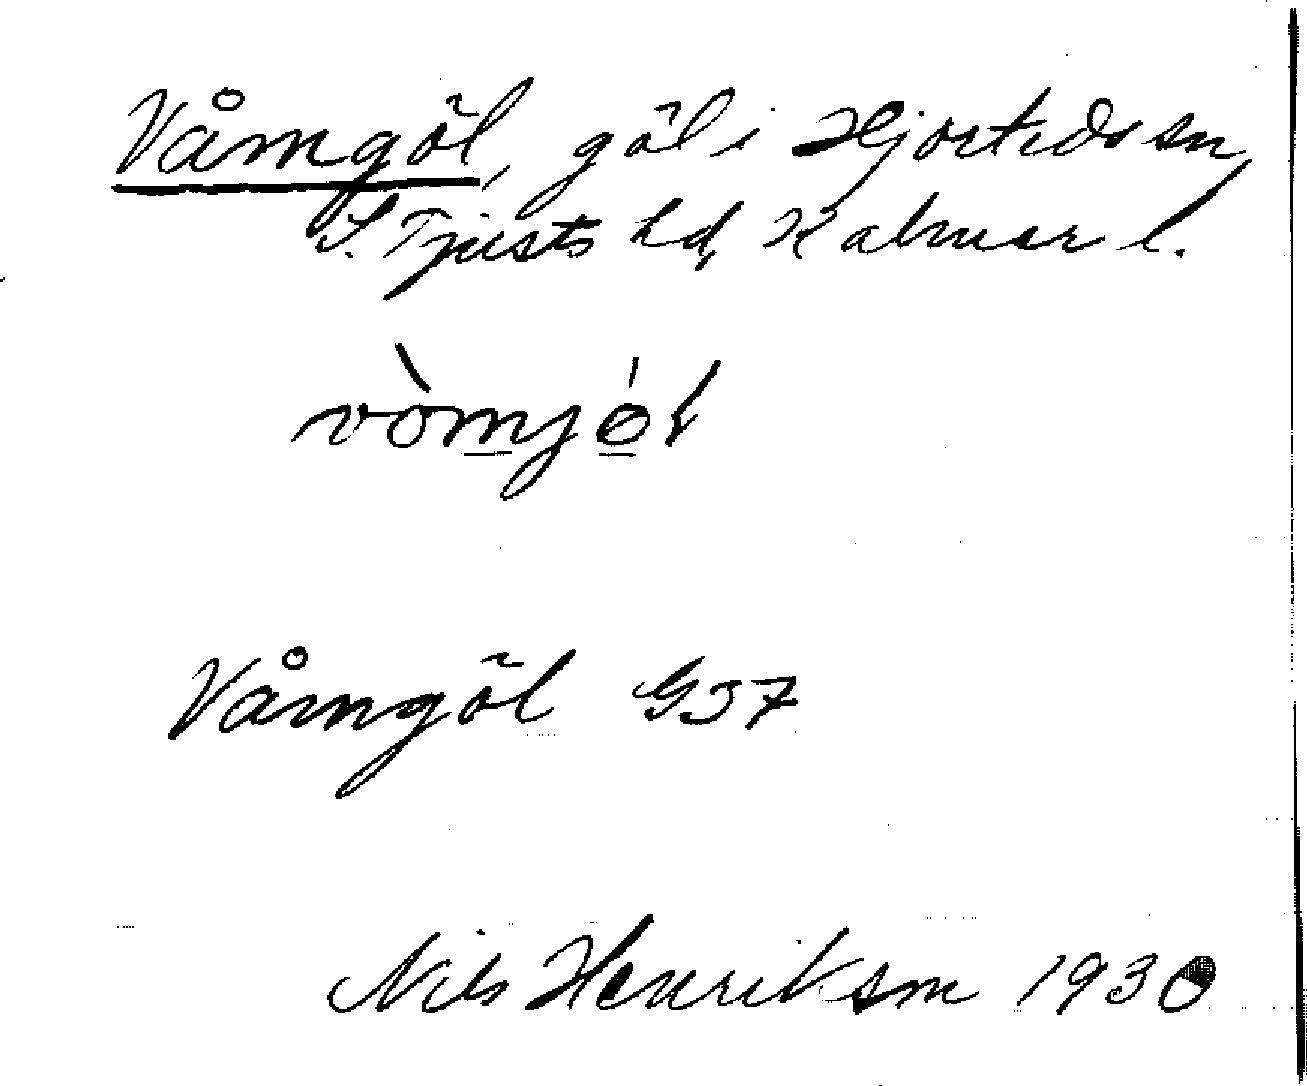 Våmgöl, göl i Hjorteds sn,
S. Tjusts hd, Kalmar l.
vòmjö́l
Våmgöl G37
Nils Henriksson 1930